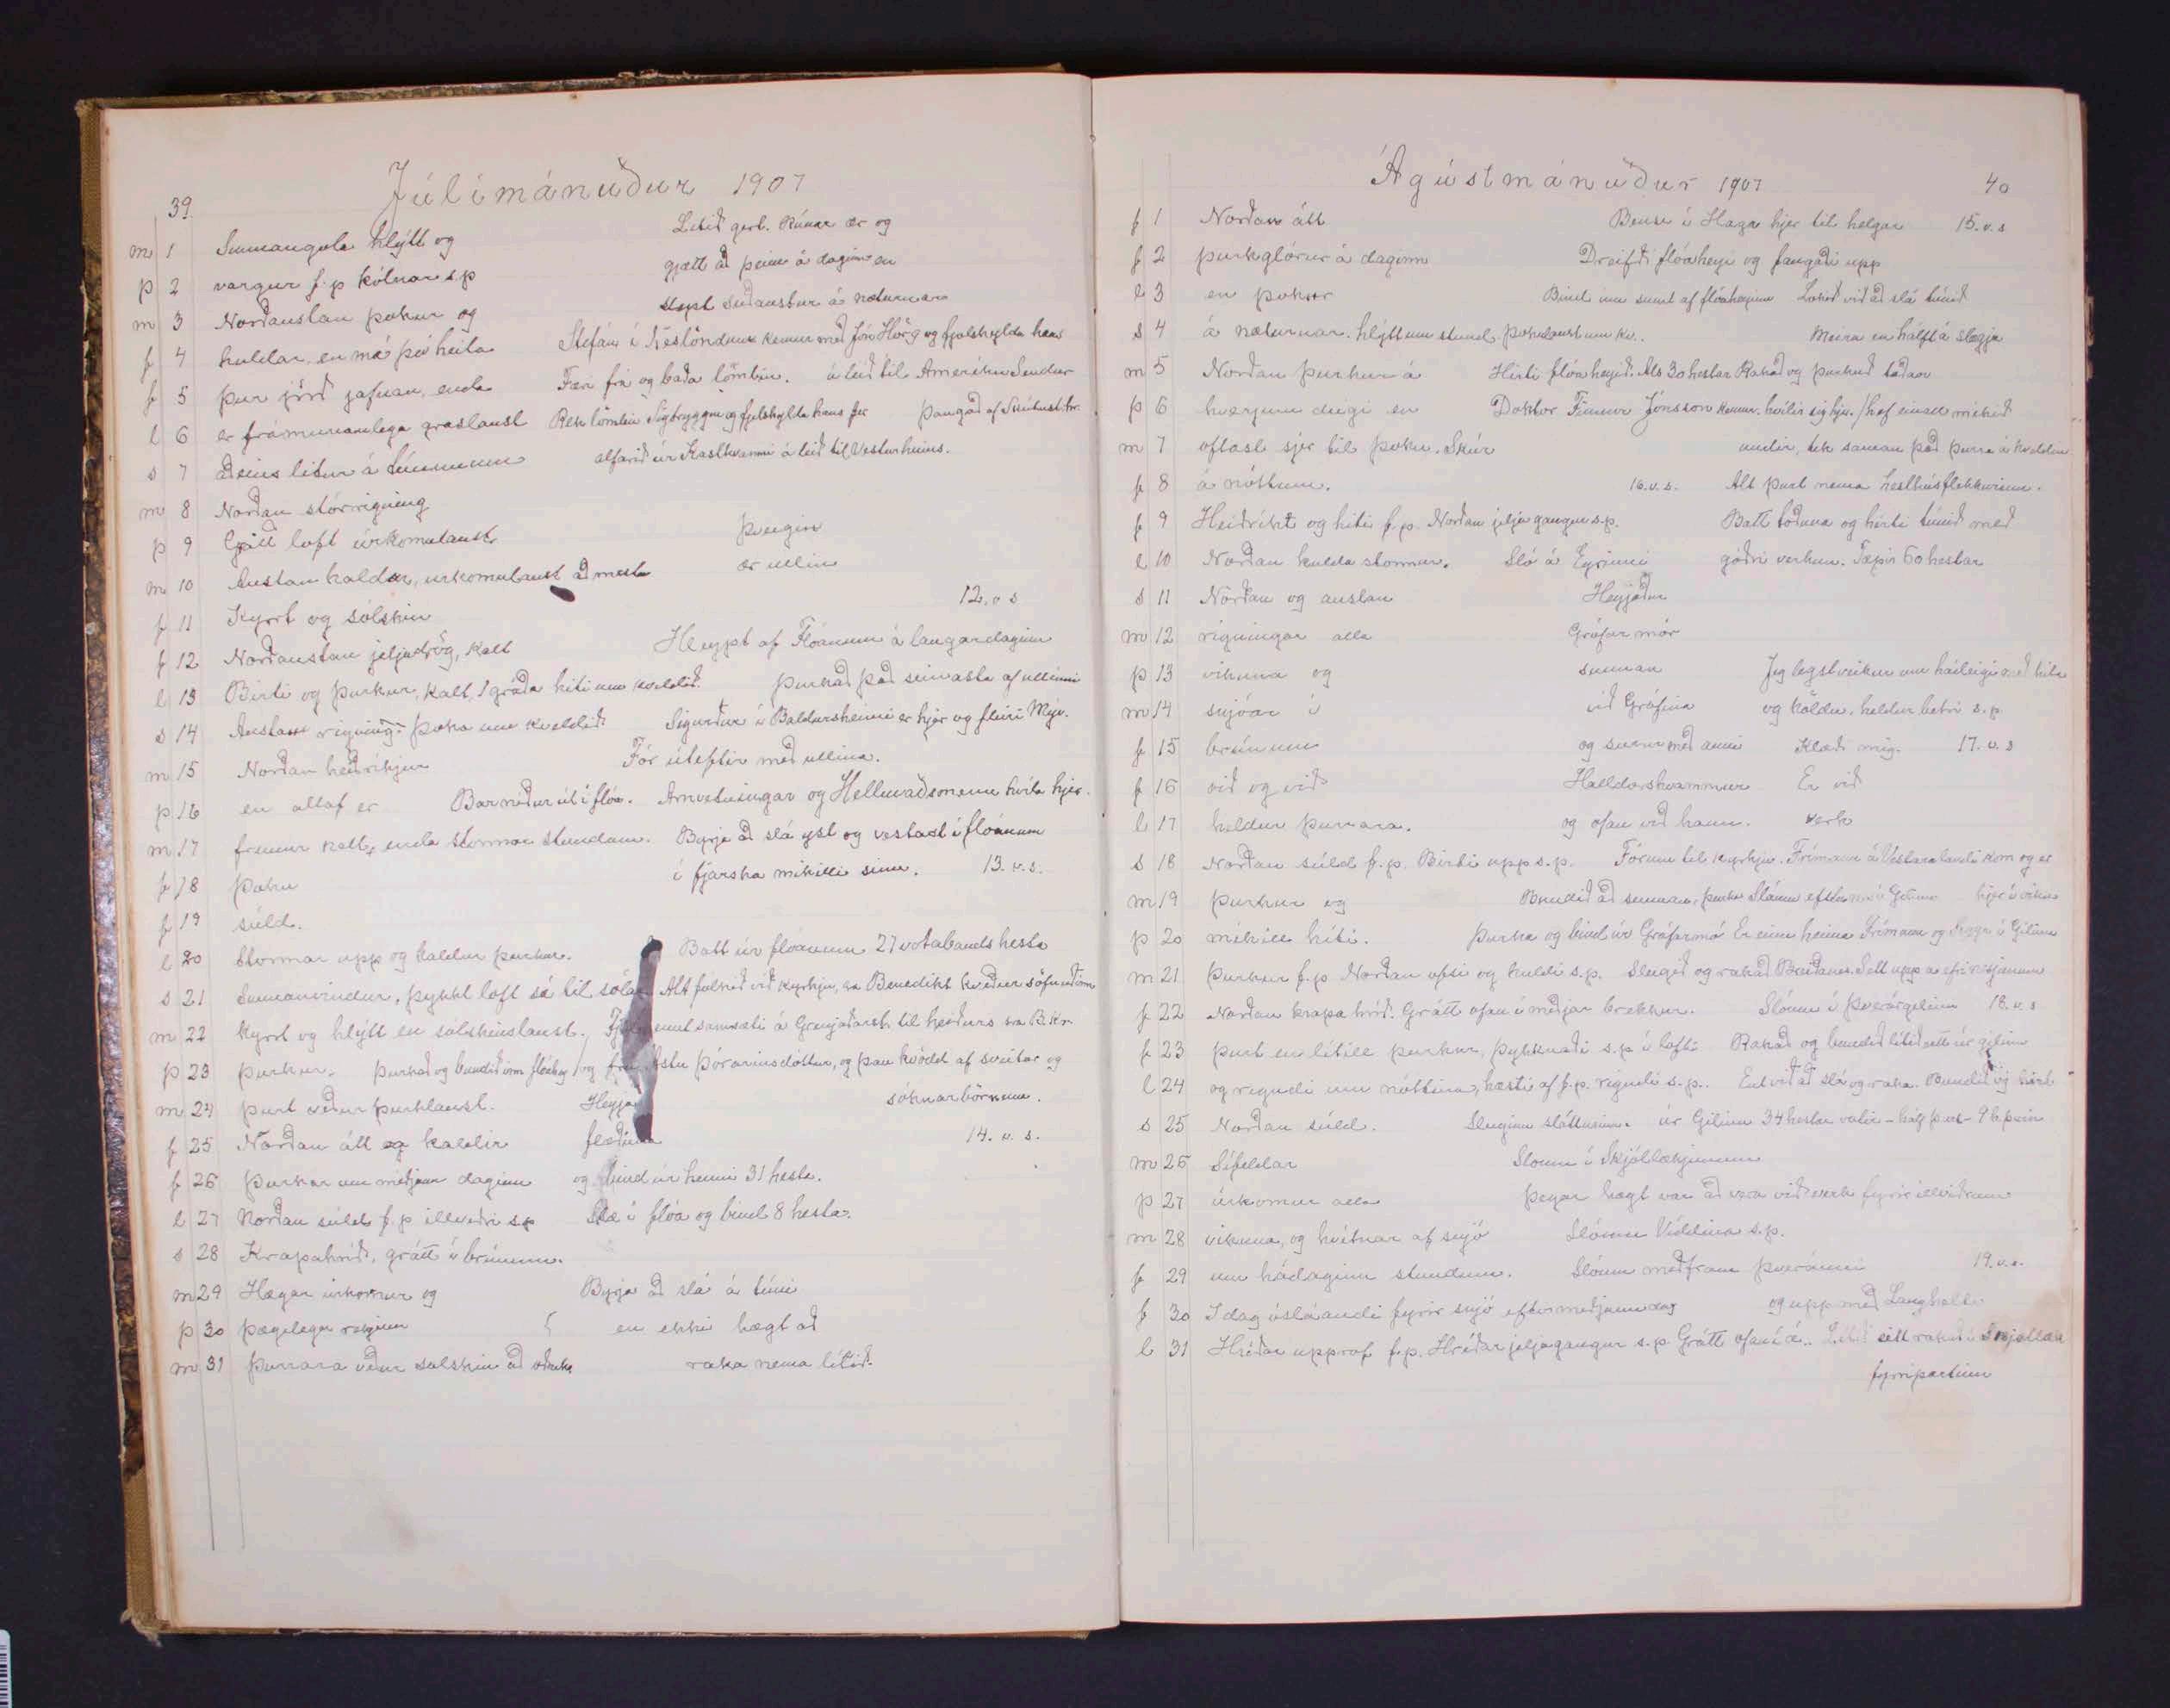 39
Júlímánuður 1907
m 1 Sunnangola hlýtt og Litið gert. Rúnar ær og
þ 2 vargur f.p. kólnar s.p. gjætt að þeim á daginn en
m 3 Norðaustan þokur og slept suðaustur á næturnar
f 4 kuldar, en má þó heita Stefán í Neslöndum kemur með Jón Hörg og fjölskylda hans
f 5 þur jörð jafnan, enda Færi frá og baða lömbin. á leið til Ameríku Sendur
l 6 er frámunanlega graslaust Rek lömbin Sigtryggur og fjölskylda hans fer þangað af Skútust.hr.
s 7 aðeins litur á túnunum alfarið úr Kasthvammi á leið til Vesturheims.
m 8 Norðan stórrigning
þ 9 Grátt loft úrkomulaust Þvegin
m 10 Austan kaldar, úrkomulaust að mestu ær ullin
f 11 Kyrt og sólskin 12. v s
f 12 Norðaustan jeljadrög, kalt Hleypt af Flóanum á laugardaginn
l 13 Birti og þurkur, kalt, 1 gráða hiti um kveldið. Þurkað það seinasta af ullinni
s 14 Austan rigning. Þoka um kveldið Sigurður í Baldursheimi er hjer og fleiri Mýv.
m 15 Norðan heiðríkjur Fór úteftir með ullina.
þ 16 en altaf er Bar niður út í flóa. Arnvetningar og Helluvaðsmenn hvíla hjer.
m 17 fremur kalt, enda stormar stundum. Byrja að slá yst og vestast í flóanum
f 18 þoku í fjarska mikilli sinu. 13. v.s.
f 19 súld.
l 20 Stormar upp og kaldur þurkur. Batt úr flóanum 27 votabands hesta
s 21 Sunnanvindur, þykkt loft sá til sólar Alt fólkið við kyrkju, sra Benedikt kveður söfnuðinn
m 22 Kyrt og hlýtt en sólskinslaust. samsæti á Grenjaðarst. til heiðurs sra B.Kr.
þ 23 þurkur. Þurkað og bundið inn flóahey og Ástu Þórarinsdóttur, og þau kvödd af sveitar og
m 24 þurt veður þurklaust. Heyja sóknarbörnum.
f 25 Norðan átt og kaldir flæðina 14. v. s.
f 26 þurkar um miðjann daginn og bind úr henni 31 hesta.
l 27 Norðan súld f.p illveðri s.p Slæ í flóa og bind 8 hesta.
s 28 Krapahríð, grátt í brúnum.
m 29 Hægar úrkomur og Byrja að slá á túni
þ 30 þægilegar rekjur en ekki hægt að
m 31 þurrara veður sólskin að raka nema lítið.
Ágústmánuður 1907
40
f 1 Norðan átt Bensi í Haga hjer til helgar 15. v. s
f 2 þurkglórur á daginn Dreifði flóaheyi og fangaði upp
l 3 en þokur Bind inn sumt af flóaheyinu Lokið við að slá túnið
s 4 á næturnar. hlýtt um stund. þokulaust um kv.. Meira en hálft á slægja
m 5 Norðan þurkur á Hirti flóaheyið. Als 30 hestar Rakað og þurkuð taðan
þ 6 hverjum deigi en Doktor Finnur Jónsson kemur. hvílir sig hjer. hef einan mikið
m 7 oftast sjer til þoku. Skúr undir, tek saman það þurra á kveldin
f 8 á nóttum. 16. v. s. Alt þurt nema hesthúsflekkurinn.
f 9 Heiðríkt og hiti f.p. Norðan jeljagangur s.p. Batt töðuna og hirti túnið með
l 10 Norðan kulda stormur. Sló á Eyrinni góðri verkun. Tæpir 60 hestar
s 11 Norðan og austan Heyjaður
m 12 rigningar alla Grófar mór
þ 13 vikuna og sunnan Jeg legst veikur um háttleigi með hita
m 14 snjóar í við Grófina og köldu. heldur betri s.p.
f 15 brúnum og Klæði mig. 17. v. s
f 16 við og við Halldórshvammur Er við
l 17 heldur þurrara. og ofan við hann. verk
s 18 Norðan súld f.p. Birti upp s.p. Fórum til kyrkju. Frímann á Vestaralandi kom og er
m 19 þurkur og Bundið að sunnan, þurka Sláum eftir hjer í viku
þ 20 mikill hiti. Þurka og bind úr Grófarmó Er einn heima Frímann og í Gilinu
m 21 Þurkur f.p. Norðan ofsi og kuldi s.p. Slegið og rakað Sett upp á
f 22 Norðan krapa hríð. Grátt ofan í miðjar brekkur. Sláum í Þverárgilinu 18. v. s
f 23 þurt en lítill þurkur, þykknaði s.p í lofti Rakað og bundið lítið eitt úr gilinu
l 24 og rigndi um nóttina, hæsti af f.p. rigndi s.p.. Endað við að slá og raka. Bundið og hirt
s 25 Norðan súld. Sleginn slátturinn. úr Gilinu 34 hestar votir - hálf þur - 9 h. þurir
m 26 Sífeldar Sláum í Skjállækjunum
þ 27 úrkomur alla þegar hægt var að vera við verk fyrir illviðrum
m 28 vikuna, og hvítnar af snjó Sláum Víddina s.p.
f 29 um hádaginn stundum. Sláum meðfram Þveránni 19. v.s.
f 30 Í dag ósláandi fyrir snjó eftir miðjann dag og upp með Langhalla
l 31 Hríðar upprof f.p. Hríðar jeljagangur s.p. Grátt ofan í á.. Lítið eitt rakað
fyrripartinn